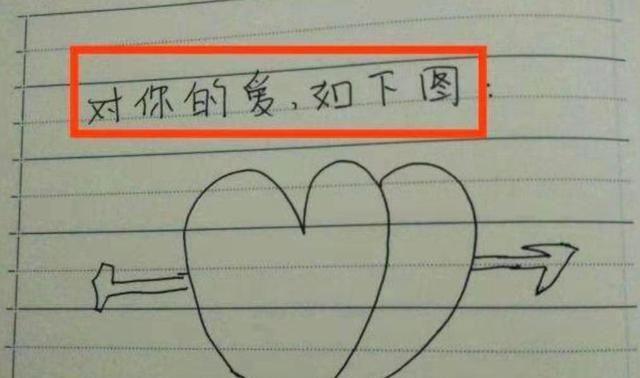 对你的爱，如下图：